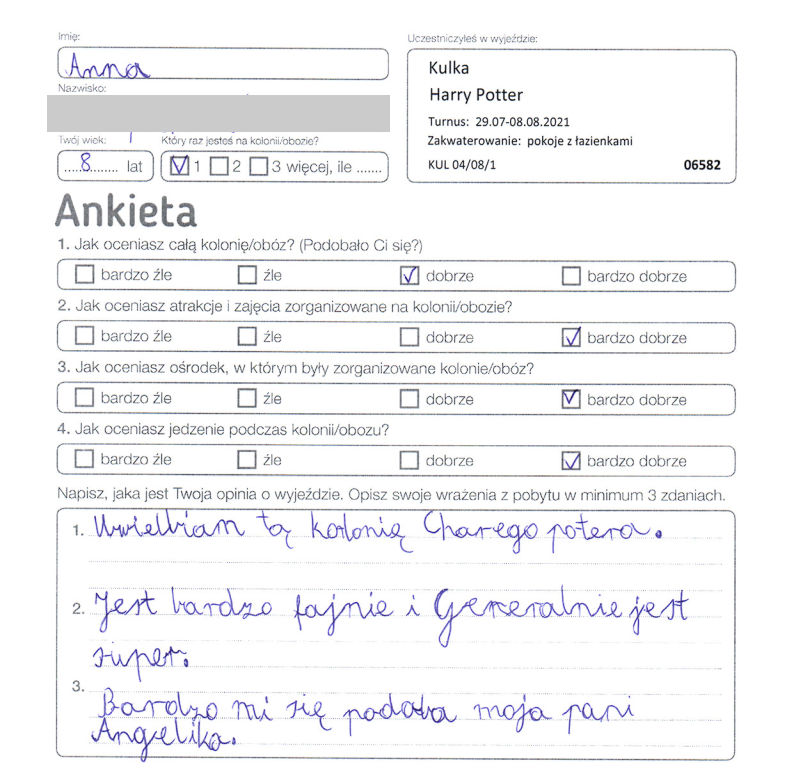 Imię:
Anna
Uczestniczyłeś w wyjeździe:
Kulka
Harry Potter
Turnus: 29.07-08.08.2021
Zakwaterowanie: pokoje z łazienkami
KUL 04/08/1 06582
Nazwisko:
Twój wiek:
8 lat
Który raz jesteś na kolonii/obozie?
1 2 3 więcej, ile .......
Ankieta
1. Jak oceniasz całą kolonię/obóz? (Podobało Ci się?)
bardzo źle źle dobrze bardzo dobrze
2. Jak oceniasz atrakcje i zajęcia zorganizowane na kolonii/obozie?
bardzo źle źle dobrze bardzo dobrze
3. Jak oceniasz ośrodek, w którym były zorganizowane kolonie/obóz?
bardzo źle źle dobrze bardzo dobrze
4. Jak oceniasz jedzenie podczas kolonii/obozu?
bardzo źle źle dobrze bardzo dobrze
Napisz, jaka jest Twoja opinia o wyjeździe. Opisz swoje wrażenia z pobytu w minimum 3 zdaniach.
1. Uwielbiam tą kolonię Charego potera.
2. Jest bardzo fajnie i Generalnie jest
super.
3. Bardzo mi się podoba moja pani
Angelika.